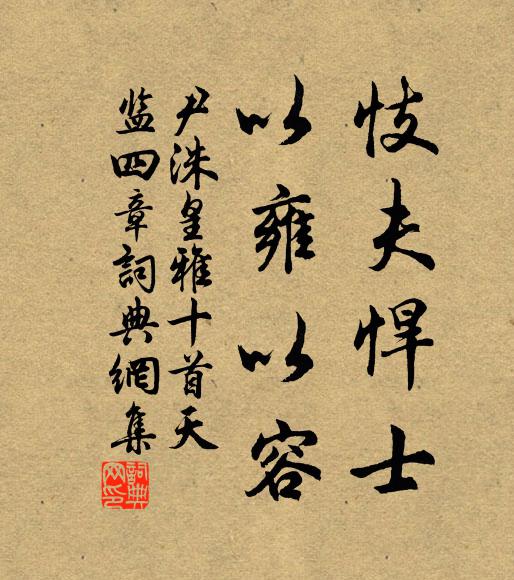 忮夫悍士
以雍以容
尹洙皇雅十首天
监四章詞典網集
詞典
网印